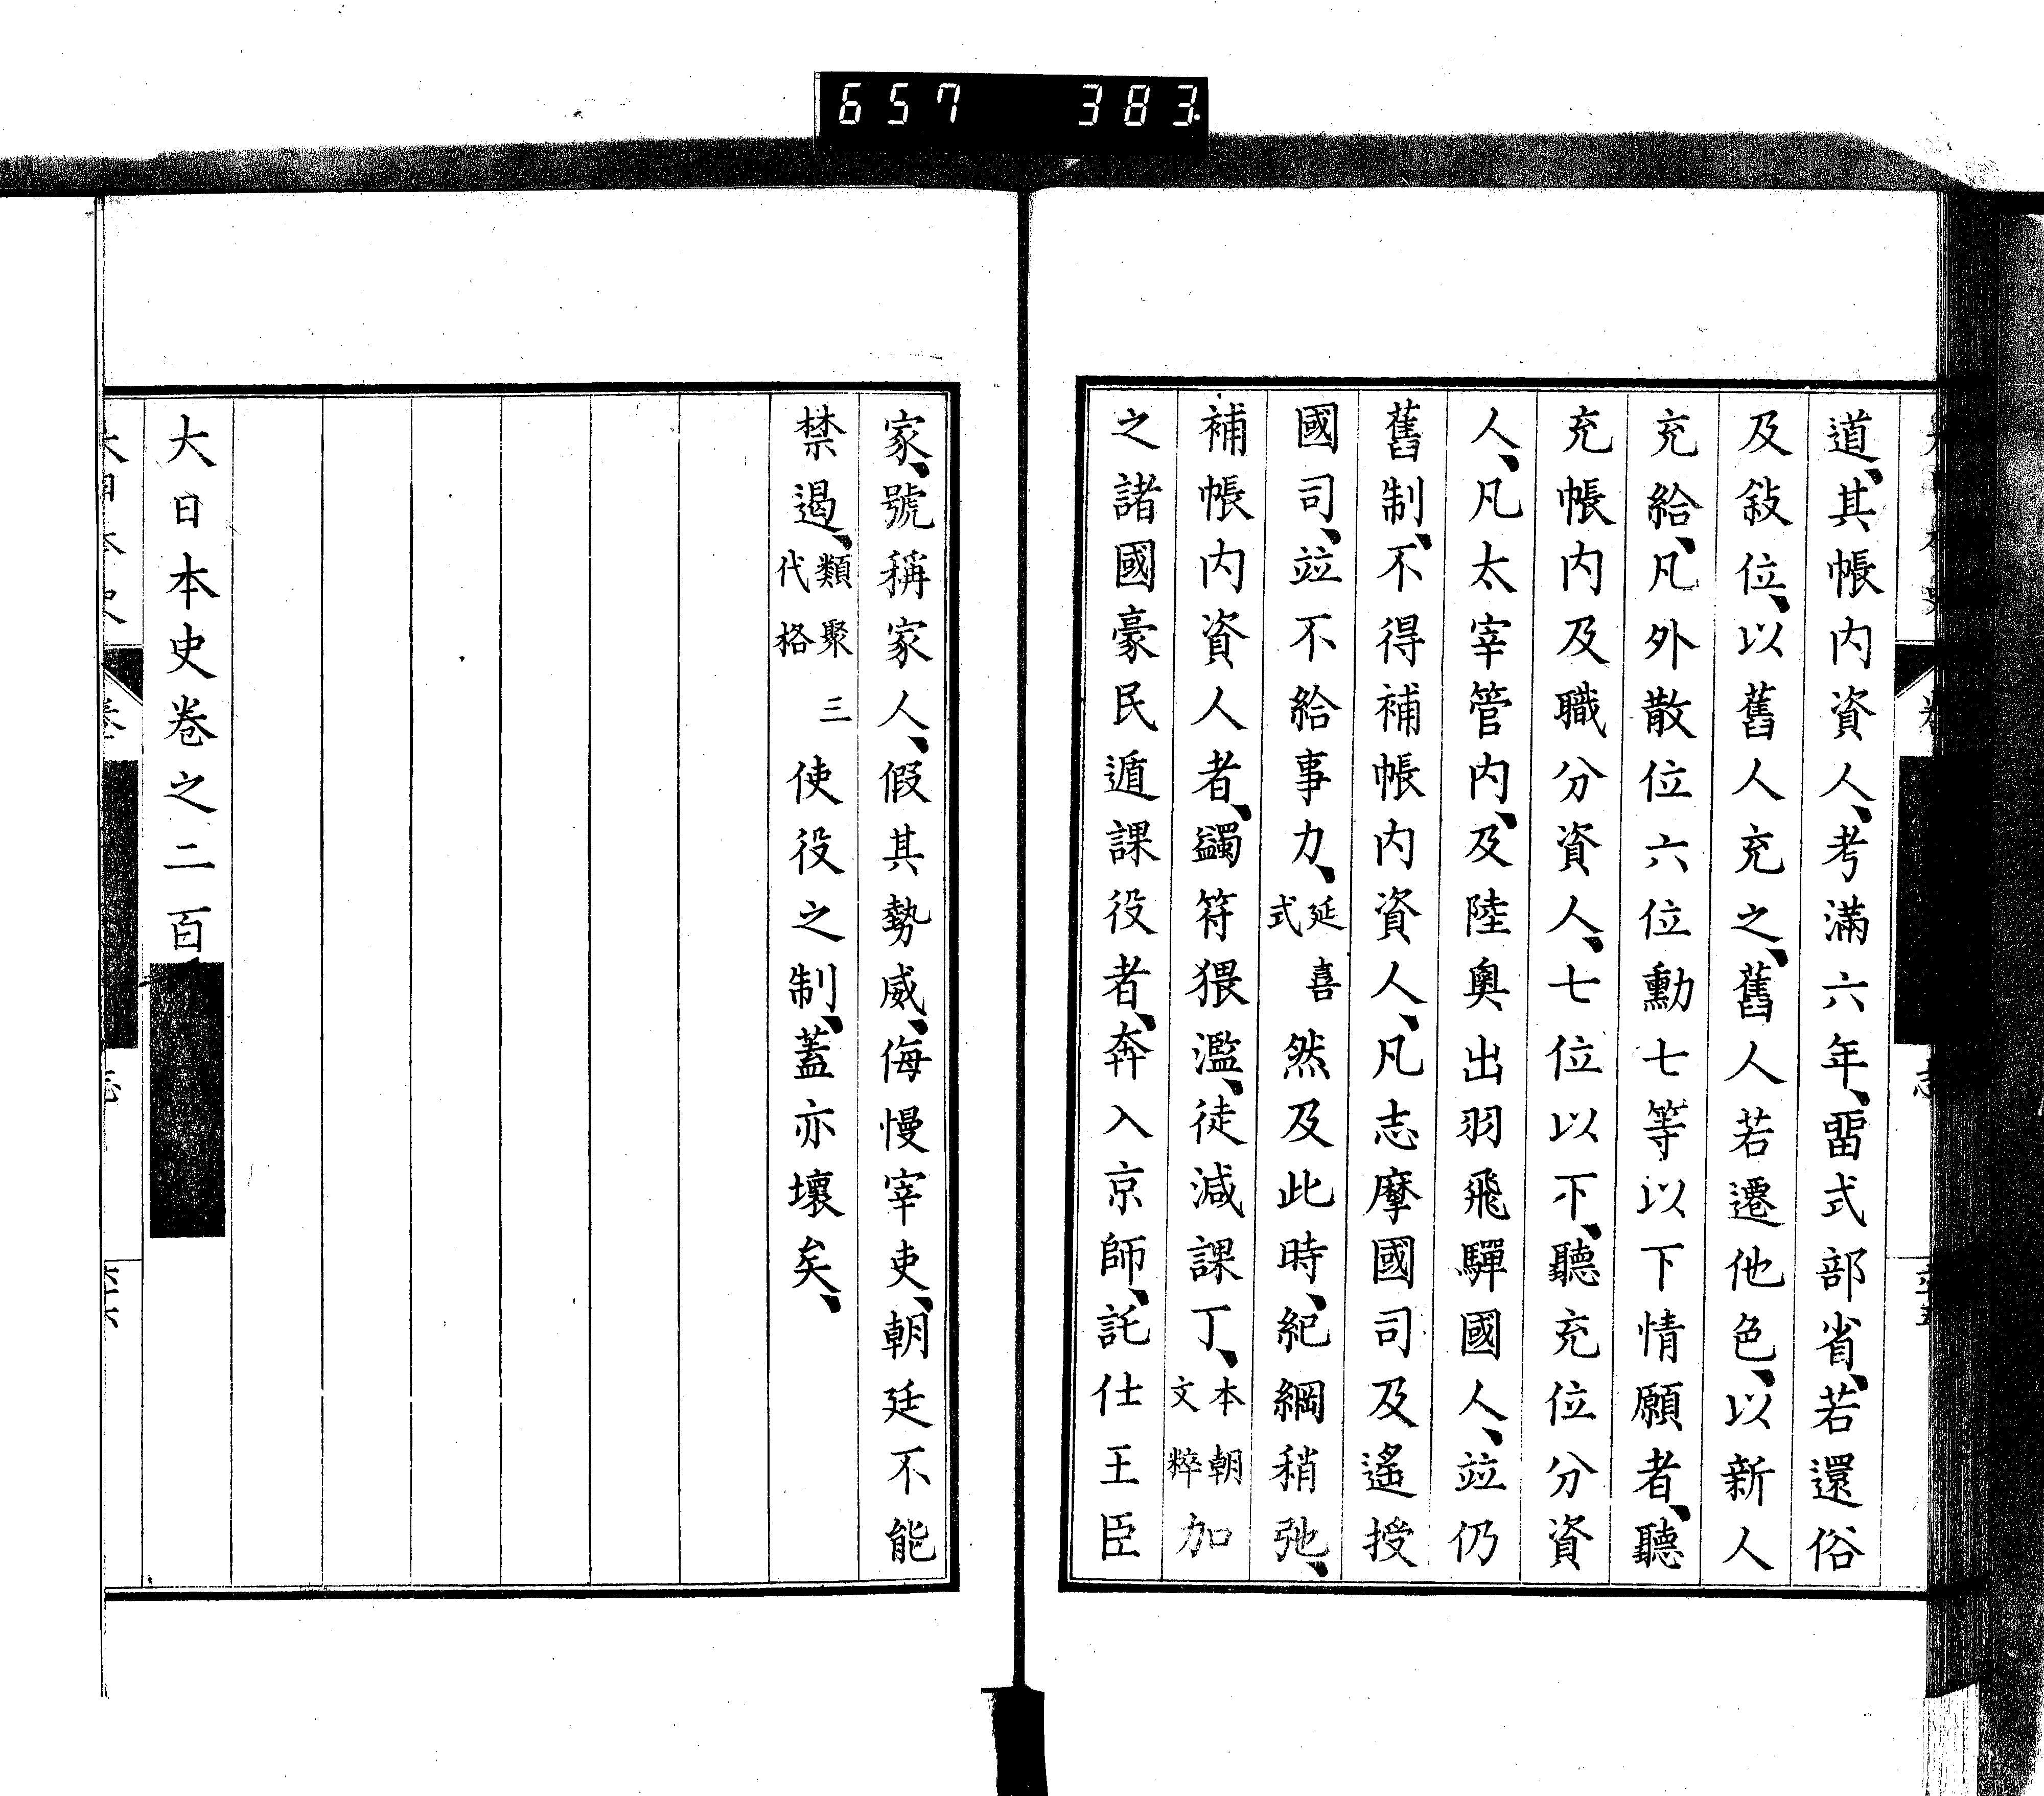 657 383
道、其帳内資人、考滿六年、畱式部省、若還俗
及敍位、以舊人充之、舊人若遷他色、以新人
充給、凡外散位六位勳七等以下情願者、聽
充帳内及職分資人、七位以下、聽充位分資
人、凡太宰管内、及陸奧出羽飛驒國人、竝仍
舊制、不得補帳内資人、凡志摩國司及遙授
國司、竝不給事力、延喜式然及此時、紀綱稍弛、
補帳内資人者、蠲符猥濫、徒減課丁、本朝文粹加
之諸國豪民遁課役者、奔入京師、託仕王臣
家、號稱家人、假其勢威、侮慢宰吏、朝廷不能
禁遏、類聚三代格使役之制、蓋亦壞矣、
大日本史卷之二百